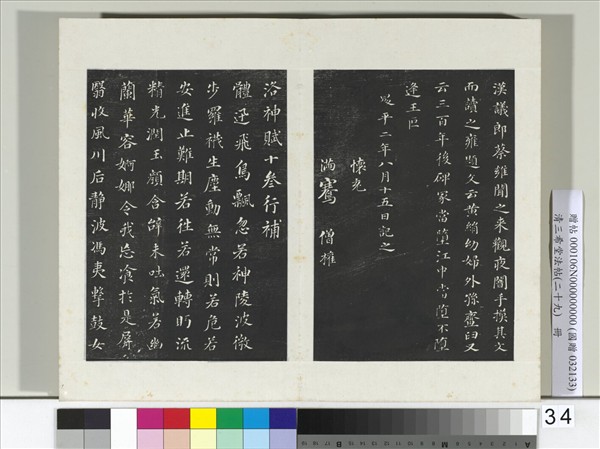 漢議郎蔡雍聞之来觀夜闇手摸其文
而讀之雍題文云黃絹幼婦外孫齏臼又
云三百年後碑冢當墮江中當墮不墮
逢王叵
昇平二年八月十五日記之
懷充
滿騫 僧權
洛神賦十叁行補
體迅飛鳧飄忽若神陵波微
步羅襪生塵動無常則若危若
安進止難期若往若還轉眄流
精光潤玉顏含辭未吐氣若幽
蘭華容婀娜令我忘飡於是屏
翳收風川后静波馮夷擊鼓女
贈帖 000106N000000000 (國贈 032133)
清三希堂法帖(二十九) 冊
34